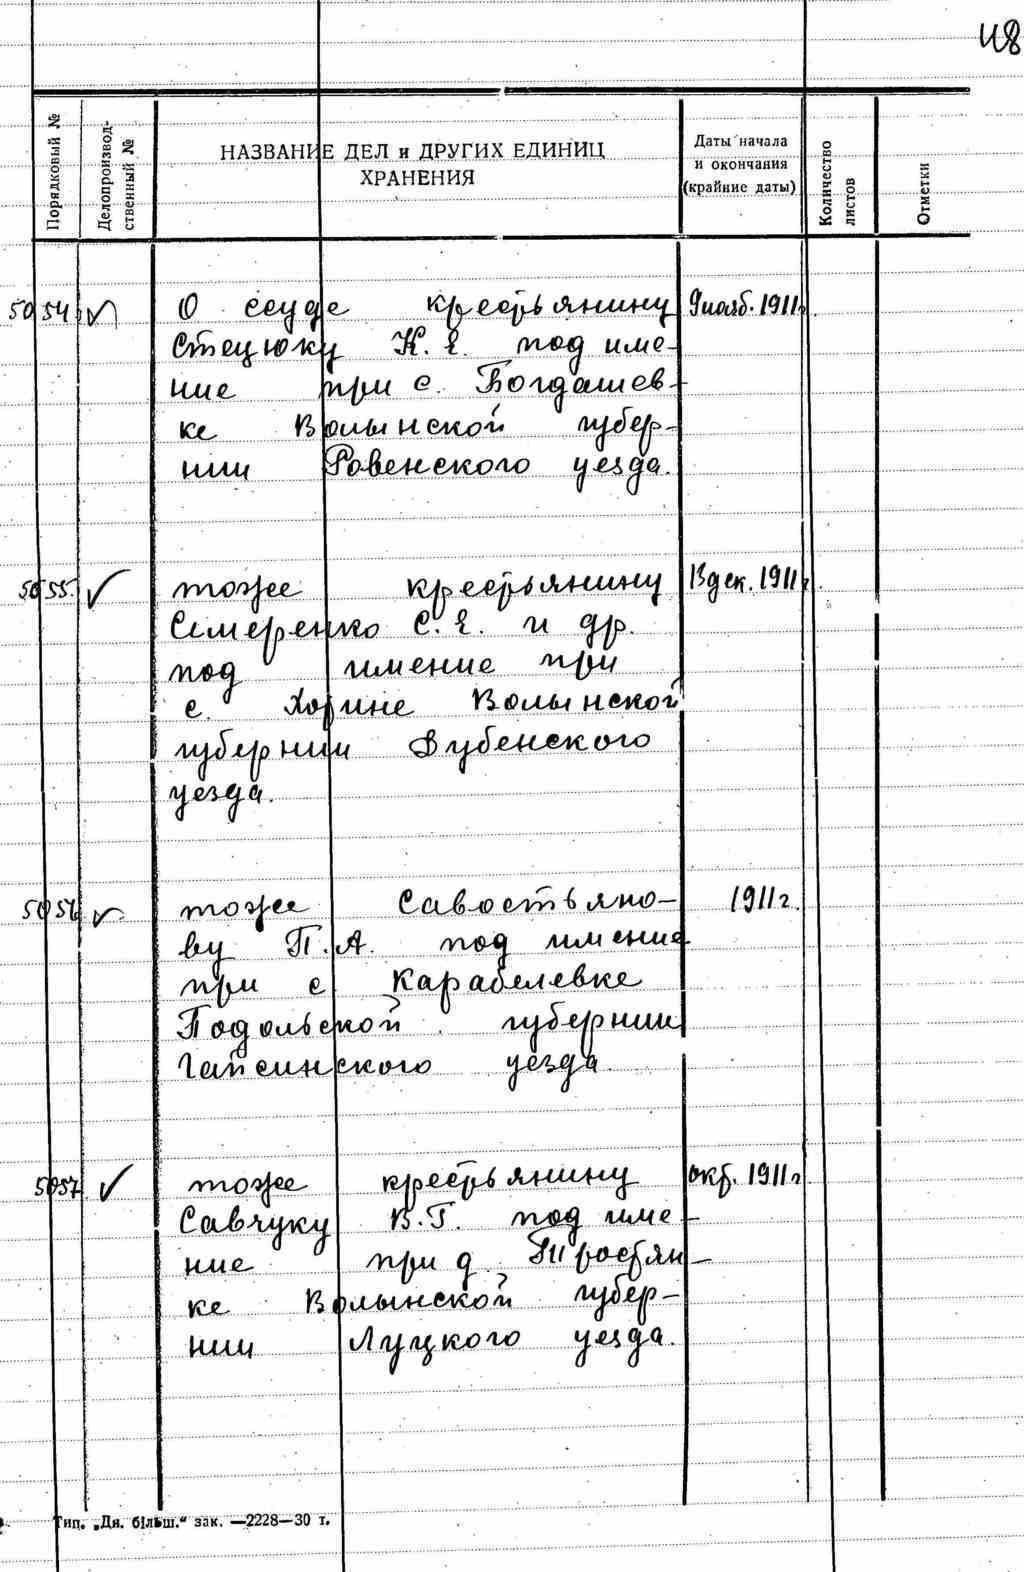 48
Порядковый №
Делопроизвод-
ственный №
НАЗВАНИЕ ДЕЛ и ДРУГИХ ЕДИНИЦ
ХРАНЕНИЯ
Даты начала
и окончания
(крайние даты)
Количество
листов
Отметки
5054. О ссуде крестьянину 9 нояб. 1911г.
Стецюку К. Е. под име-
ние при с. Богдашев-
ке Волынской губер-
нии Ровенского уезда.
5055. тоже крестьянину 13 дек. 1911г.
Семеренко С. Е. и др.
под имение при
с. Хорине Волынской
губернии Дубенского
уезда.
5056 тоже Савостьяно- 1911 г.
ву П. А. под имение
при с Карабелевке
Подольской губернии
Гайсинского уезда
5057 тоже крестьянину окт. 1911г.
Савчуку В. Г. под име-
ние при д. Тростян-
ке Волынской губер-
нии Луцкого уезда.
Тип. „Дн. більш.“ зак. —2228—30 т.